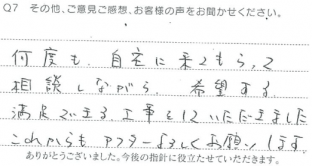 Q7 その他、ご意見ご感想、お客様の声をお聞かせください。
何度も、自宅に来てもらって
相談しながら、希望する
満足できる工事をしていただきました
これからもアフターよろしくお願いします。
ありがとうございました。今後の指針に役立たせていただきます。